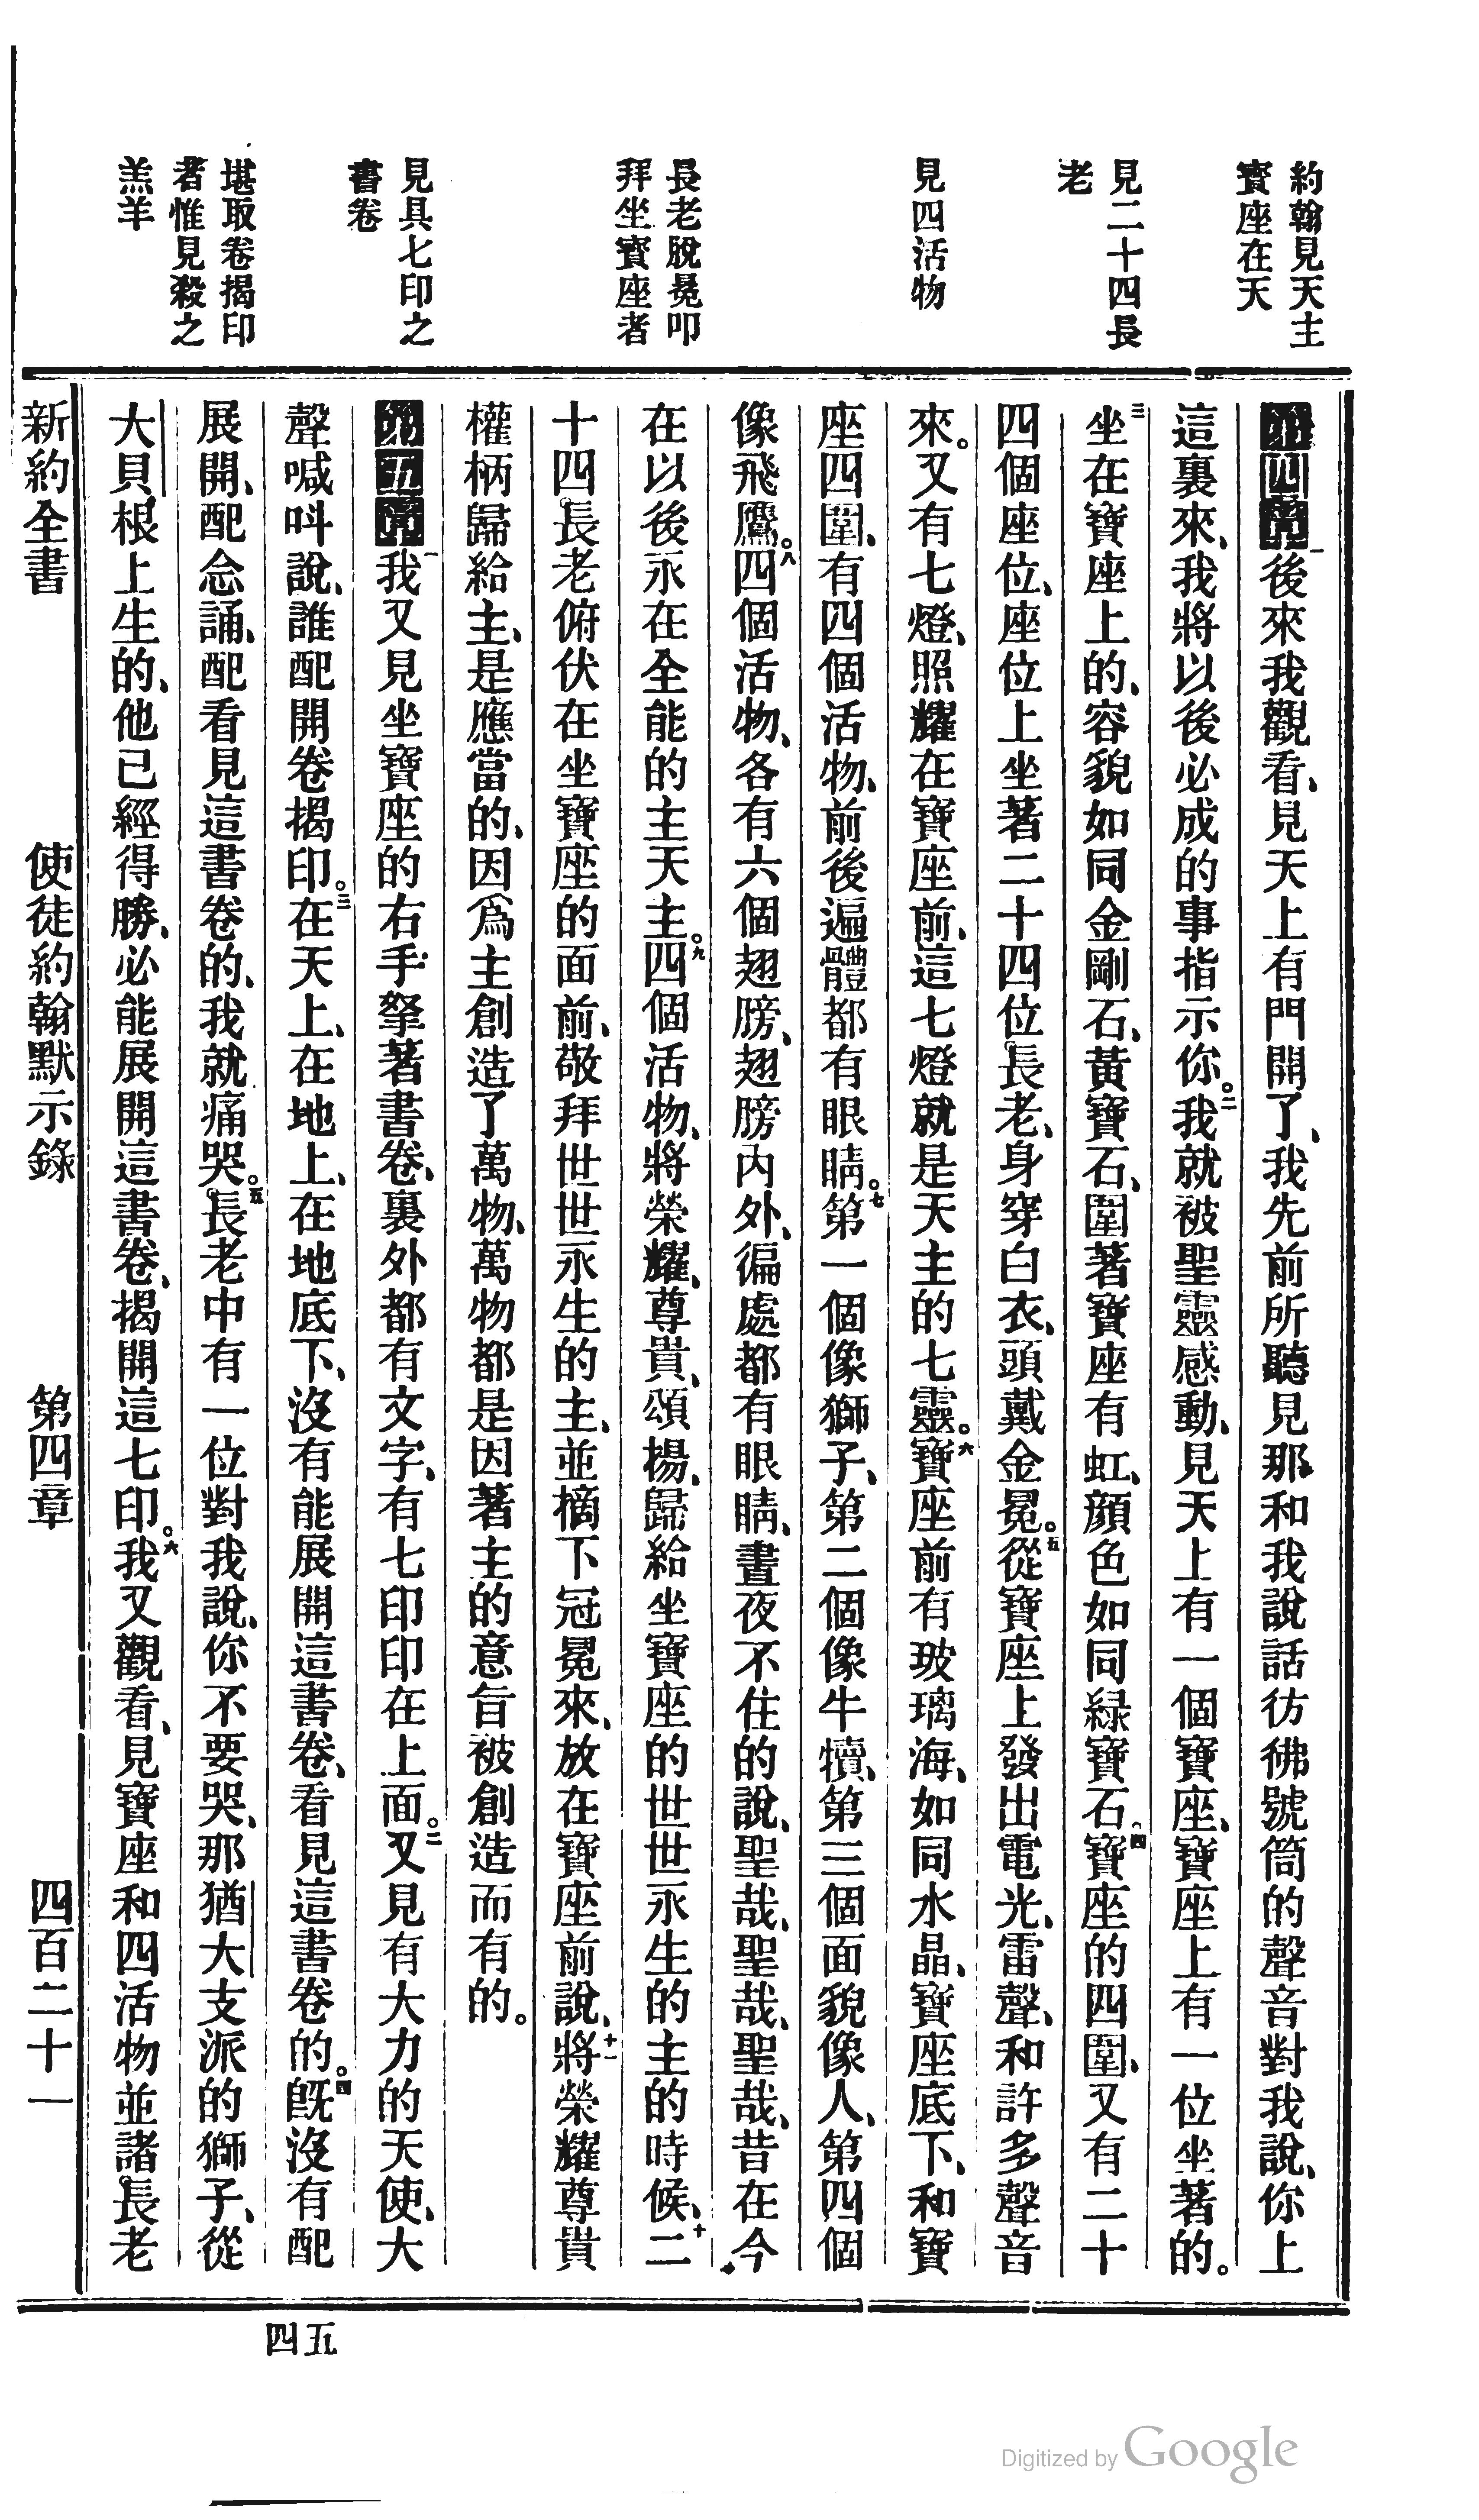 約翰見天主
寶座在天
見二十四長
老
見四活物
長老脫冕叩
拜坐寶座者
見具七印之
書卷
堪取卷揭印
者惟見殺之
羔羊
第四章一後來我觀看、見天上有門開了、我先前所聽見那和我說話彷彿號筒的聲音對我說、你上
這裏來、我將以後必成的事指示你。二我就被聖靈感動、見天上有一個寶座、寶座上有一位坐著的。
三坐在寶座上的、容貌如同金剛石、黃寶石、圍著寶座有虹、顏色如同綠寶石。四寶座的四圍、又有二十
四個座位、座位上坐著二十四位長老、身穿白衣、頭戴金冕。五從寶座上發出電光、雷聲、和許多聲音
來。又有七燈、照耀在寶座前、這七燈就是天主的七靈。六寶座前有玻璃海、如同水晶、寶座底下、和寶
座四圍、有四個活物、前後遍體都有眼睛。七第一個像獅子、第二個像牛犢、第三個面貌像人、第四個
像飛鷹。八四個活物、各有六個翅膀、翅膀內外、徧處都有眼睛、晝夜不住的說、聖哉、聖哉、聖哉、昔在今
在以後永在全能的主天主。九四個活物、將榮耀、尊貴、頌揚、歸給坐寶座的世世永生的主的時候、十二
十四長老俯伏在坐寶座的面前、敬拜世世永生的主、並摘下冠冕來、放在寶座前說、十一將榮耀尊貴
權柄歸給主、是應當的、因爲主創造了萬物、萬物都是因著主的意旨被創造而有的。
第五章一我又見坐寶座的右手拏著書卷、裏外都有文字、有七印印在上面。二又見有大力的天使、大
聲喊呌說、誰配開卷揭印。三在天上、在地上、在地底下、沒有能展開這書卷、看見這書卷的。四旣沒有配
展開、配念誦、配看見這書卷的、我就痛哭。五長老中有一位對我說、你不要哭、那猶大支派的獅子、從
大𨳝根上生的、他已經得勝、必能展開這書卷、揭開這七印。六我又觀看、見寶座和四活物並諸長老
新約全書　使徒約翰默示錄　第四章　四百二十一
四五
Digitized by Google